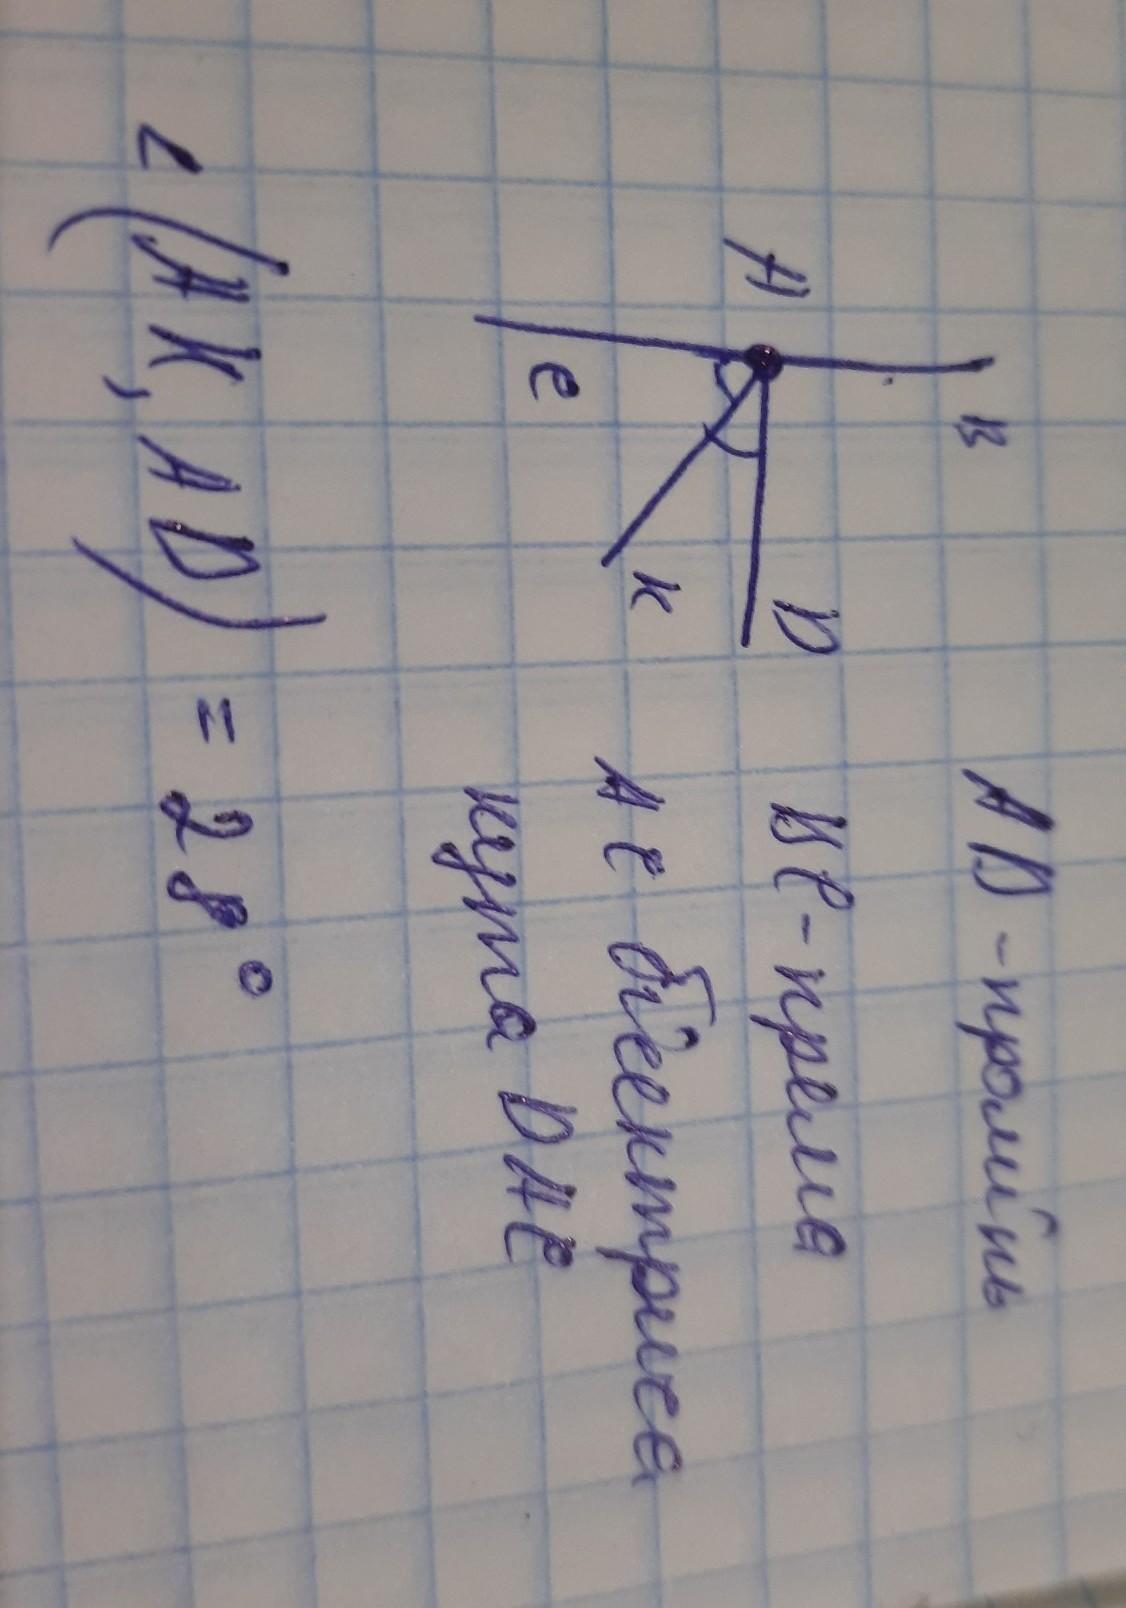 A
B
C
K
D
AD - промінь
BC - пряма
AC бісектриса
кута DAC
∠(AK, AD) = 28°